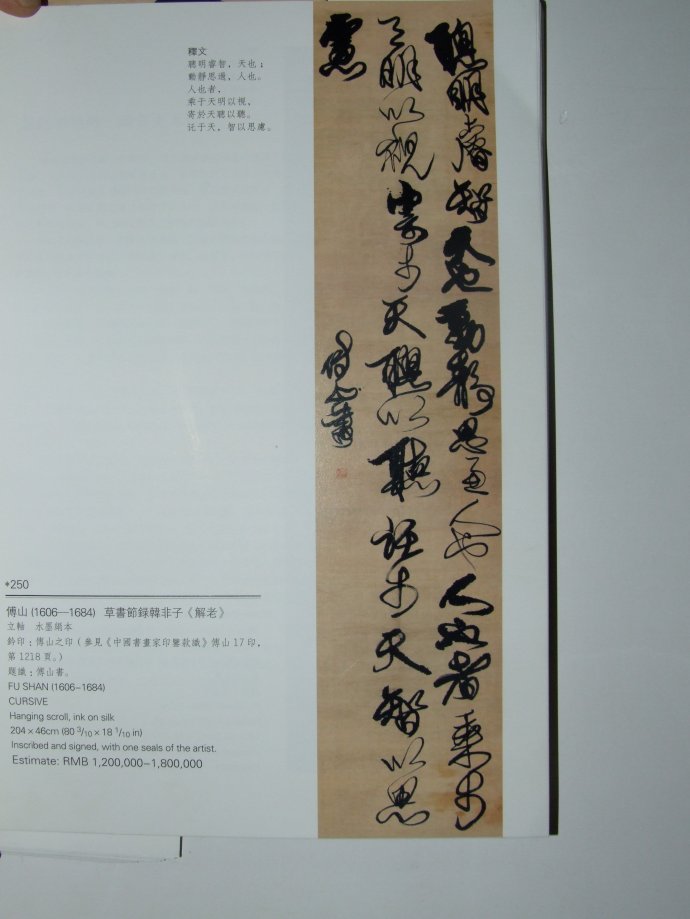 釋文
聰明睿智,天也;
動靜思過,人也。
人也者,
乘于天明以視,
寄於天聰以聽。
讬于天,智以思慮。
聰明睿智天也動靜思過人也人也者乘於
天明以視寄於天聰以聽託於天智以思
慮
傅山書
*250
傅山 (1606—1684) 草書節錄韓非子《解老》
立軸 水墨絹本
鈐印:傅山之印(參見《中國書畫家印鑒款識》傅山17印,
第1218頁。)
題識:傅山書。
FU SHAN (1606–1684)
CURSIVE
Hanging scroll, ink on silk
204 × 46cm (80 3/10 × 18 1/10 in)
Inscribed and signed, with one seals of the artist.
Estimate: RMB 1,200,000–1,800,000